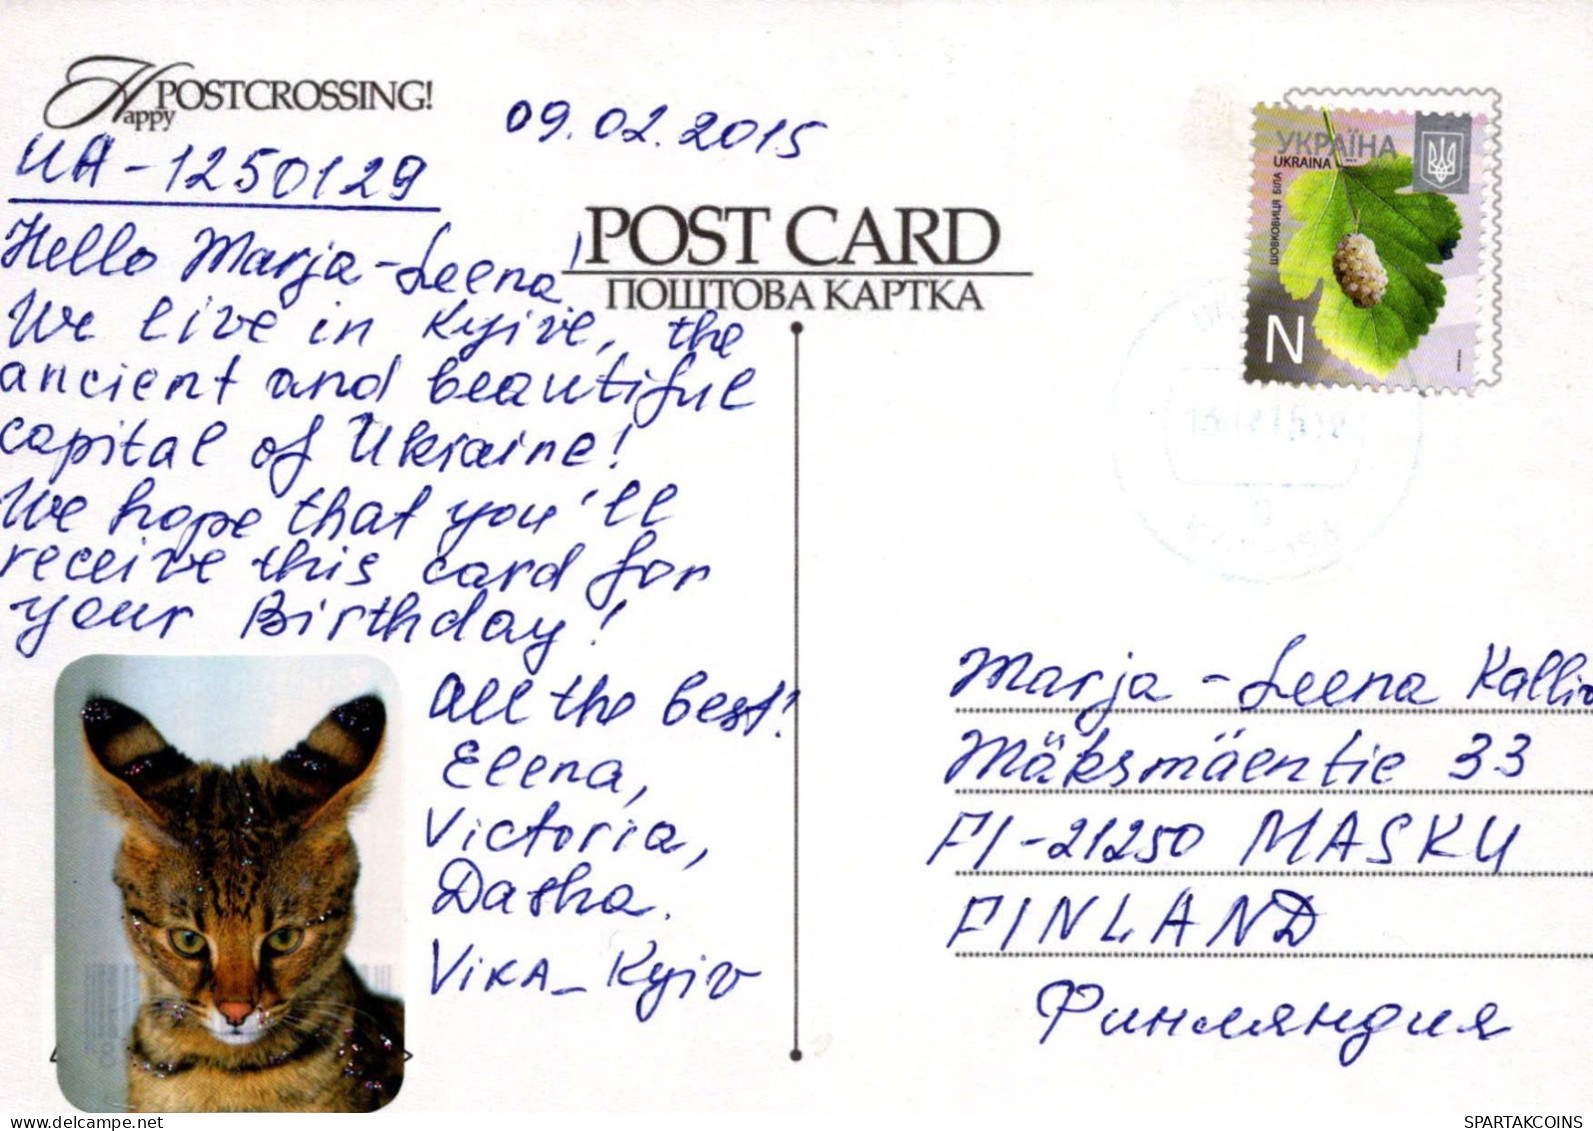 Happy POSTCROSSING!
UA-1250129
09.02.2015
Hello Marja-Leena!
We live in Kyive, the
ancient and beautiful
capital of Ukraine!
We hope that you'll
receive this card for
your Birthday!
All the best!
Elena,
Victoria,
Dasha.
VikA_Kyiv
POST CARD
ПОШТОВА КАРТКА
УКРАЇНА
UKRAINA
ШОВКОВИЦЯ БІЛА
N
Marja-Leena Kallio
Mäksmäentie 33
FI-21250 MASKU
FINLAND
Финляндия
delcampe.net
SPARTAKCOINS